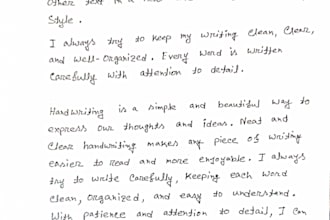 Other text in a
Style.
I always try to keep my writing clean, Clear,
and well-Organized. Every word is written
Carefully with attention to detail.
Handwriting is a simple and beautiful way to
express our thoughts and ideas. Neat and
Clear handwriting makes any piece of writing
easier to read and more enjoyable. I always
try to write Carefully, Keeping each word
Clean, Organized, and easy to understand.
With patience and attention to detail, I can